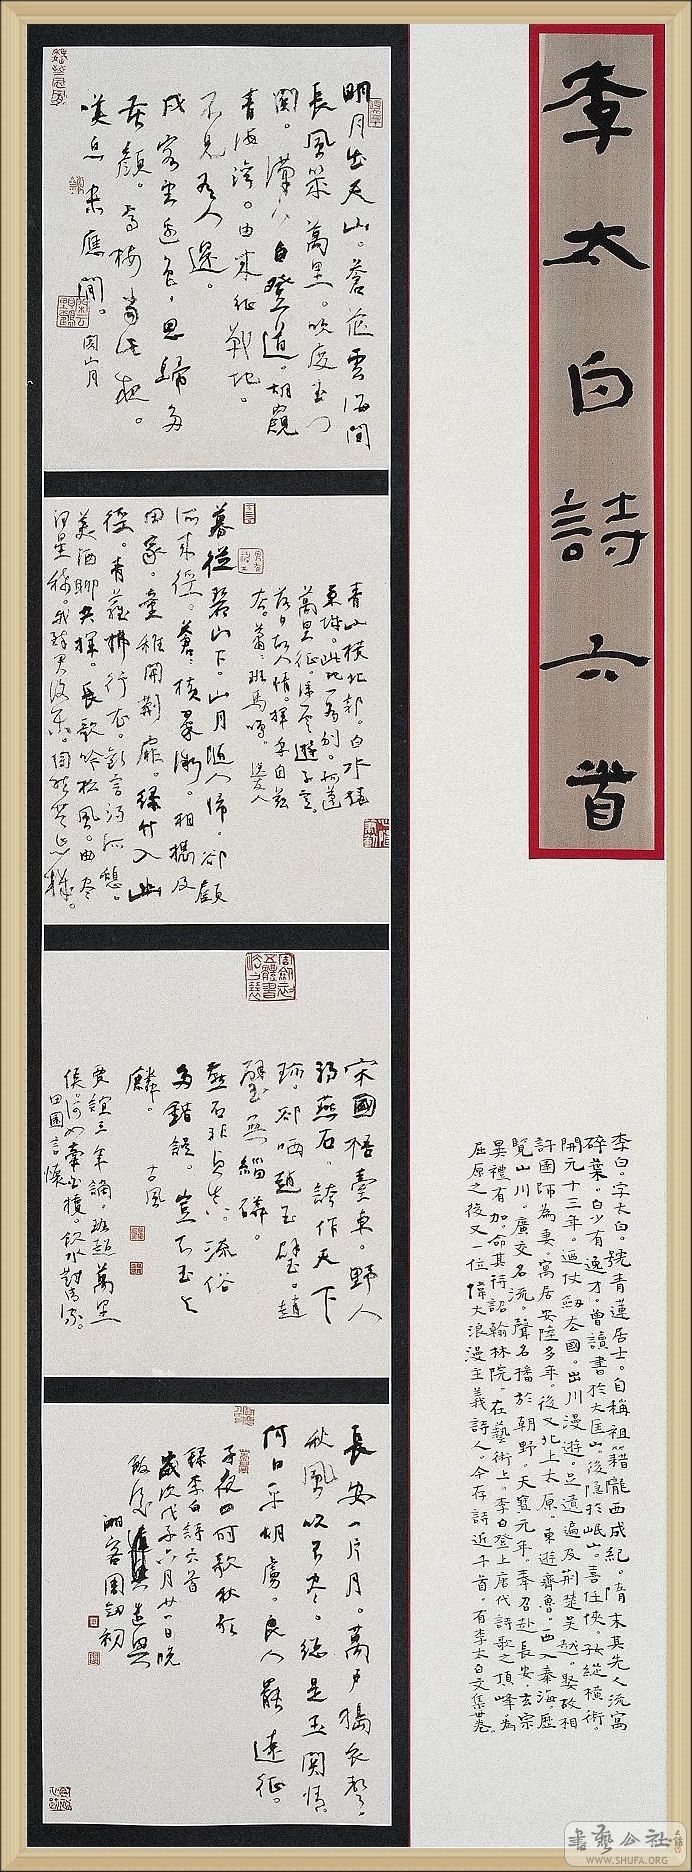 李太白詩六首
明月出天山。蒼茫雲海間
長風幾萬里。吹度玉門
關。漢下白登道。胡窺
青海灣。由來征戰地。
不見有人還。
戍客望邊色，思歸多
苦顏。高樓當此夜。
嘆息未應閒。關山月
青山橫北郭。白水繞
東城。此地一為別。孤蓬
萬里征。浮雲遊子意。
落日故人情。揮手自茲
去。蕭蕭班馬鳴。送友人
暮從碧山下。山月隨人歸。卻顧
所來徑。蒼蒼橫翠微。相攜及
田家。童稚開荊扉。綠竹入幽
徑。青蘿拂行衣。歡言得所憩。
美酒聊共揮。長歌吟松風。曲盡
河星稀。我醉君復樂。陶然共忘機。
宋國梧臺東。野人
得燕石。誇作天下
珍。卻哂趙王璧。趙
璧無緇磷。
燕石非貞真。流俗
多錯誤。豈知玉與
麟。古風
賈誼三年謫。班超萬里
侯。何如牽白犢。飲水對清流。
田園言懷
長安一片月。萬戶擣衣聲。
秋風吹不盡。總是玉關情。
何日平胡虜。良人罷遠征。
子夜四時歌秋歌
錄李白詩六首
歲次戊子六月廿一日晚
湘客周劍初
李白。字太白。號青蓮居士。自稱祖籍隴西成紀。隋末其先人流寓
碎葉。白少有逸才。曾讀書於大匡山。後隱於岷山。喜任俠。好縱橫術。
開元十三年。遍仗劍去國。出川漫遊。足遺遍及荊楚吳越。娶故相
許圉師為妻。寓居安陸多年。後又北上太原。東遊齊魯。西入秦海。歷
覽山川。廣交名流。聲名播於朝野。天寶元年。奉召赴長安。玄宗
異禮有加。命其待詔翰林院。在藝術上。李白登上唐代詩歌之頂峰。為
屈原之後又一位偉大浪漫主義詩人。今存詩近千首。有李太白文集卅卷。
書藝公社
WWW.SHUFA.ORG